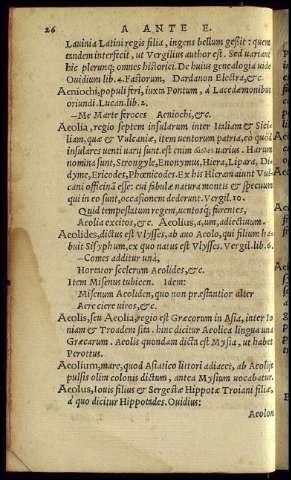 26 A ANTE E.
Laviniæ Latini regis filia, ingens bellum gessit: quem
tandem interfecit, ut Vergilius author est. Sed variant
hic plerunq; omnes historici. De huius genealogia vide
Ovidium lib. 4. Fastorum, Dardanon Electra, &c.
Aeniochi, populi feri, iuxta Pontum, a Lacedæmonibus
oriundi. Lucan. lib. 2.
—Me Marte feroces Aeniochi, &c.
Aeolia, regio septem insularum inter Italiam & Sici-
liam, quæ & Vulcaniæ, item uentorum patria, eo quod
insulares uenti uary sunt. est enim uarius. Harum
nomina sunt, Strongyle, Euonymus, Hiera, Lipara, Di-
dyme, Ericodes, Phœnicodes. Ex his Hieran aiunt Vul-
cani officinā esse: cui fabulæ natura montis & specuum
qui in eo sunt, occasionem dederunt. Vergil. 10.
Quid tempestatum regem, uentosq; furentes,
Aeolia excitos, &c. Aeolius, a, um, adiectiuum.
Aeolides, dictus est Vlysses, ab auo Aeolo, qui filium ha-
buit Sisyphum, ex quo natus est Vlysses. Vergil. lib. 6.
—Comes additur unà,
Hortator scelerum Aeolides, &c.
Item Misenus tubicen. Idem:
Misenum Aeoliden, quo non præstantior alter
Aere ciere uiros, &c.
Aeolis, seu Aeolia, regio est Græcorum in Asia, inter Io
niam & Troadem sita. hinc dicitur Aeolica lingua una
Græcarum. Aeolis quondam dicta est Mysia, ut habet
Perottus.
Aeolium, mare, quod Asiatico littori adiacet, ab Aeolijs
pulsis olim colonis dictum, antea Mysium uocabatur.
Aeolus, Iouis filius & Sergestæ Hippotæ Troiani filiæ,
à quo dicitur Hippotades. Ouidius:
Aeolon